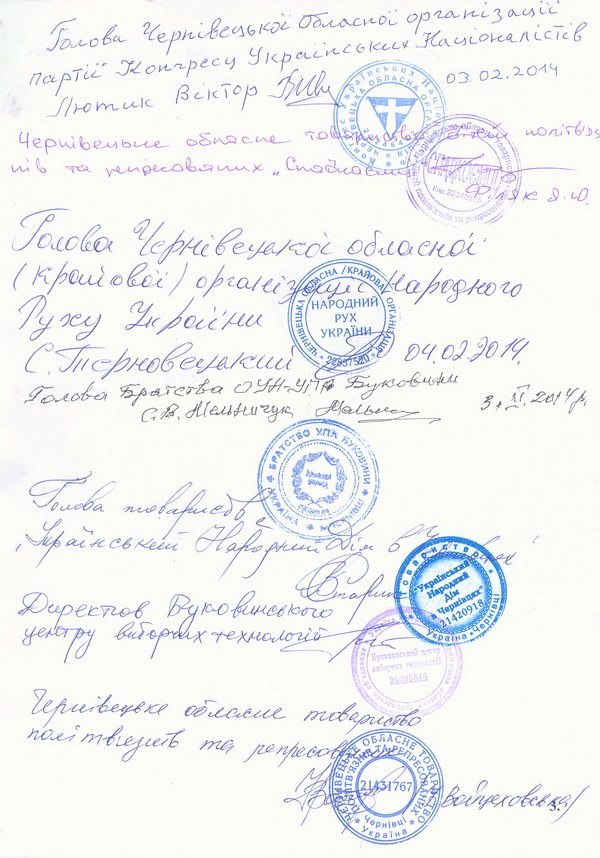 Голова Чернівецької Обласної організації
партії Конгресу Українських Націоналістів
Лютик Віктор 03.02.2014
Чернівецьке обласне товариство політв'яз
нів та репресованих „Спадкоємці"
Фляк
Голова Чернівецької обласної
(крайової) організації Народного
Руху України
НАРОДНИЙ
РУХ
УКРАЇНИ
ЧЕРНІВЕЦЬКА ОБЛАСНА /КРАЙОВА/ ОРГАНІЗАЦІЯ
22837520
С. Терновецький 04.02.2014.
Голова Братства ОУН-УПА Буковини
Мельничук 3. 2014р.
БРАТСТВО УПА БУКОВИНИ
УКРАЇНА
Голова товариств
„Український Народний Дім в
Товариство
"Український
Народний
Дім
в Чернівцях"
21420918
Україна Чернівці
Директор Буковинського
центру виборчих технологій
Буковинський центр
виборчих технологій
Чернівецьке обласне товариство
політв'язнів та репресованих
ЧЕРНІВЕЦЬКЕ ОБЛАСНЕ ТОВАРИСТВО
ПОЛІТВ'ЯЗНІВ ТА РЕПРЕСОВАНИХ
21431767
Чернівці
Україна
Войцеховська/